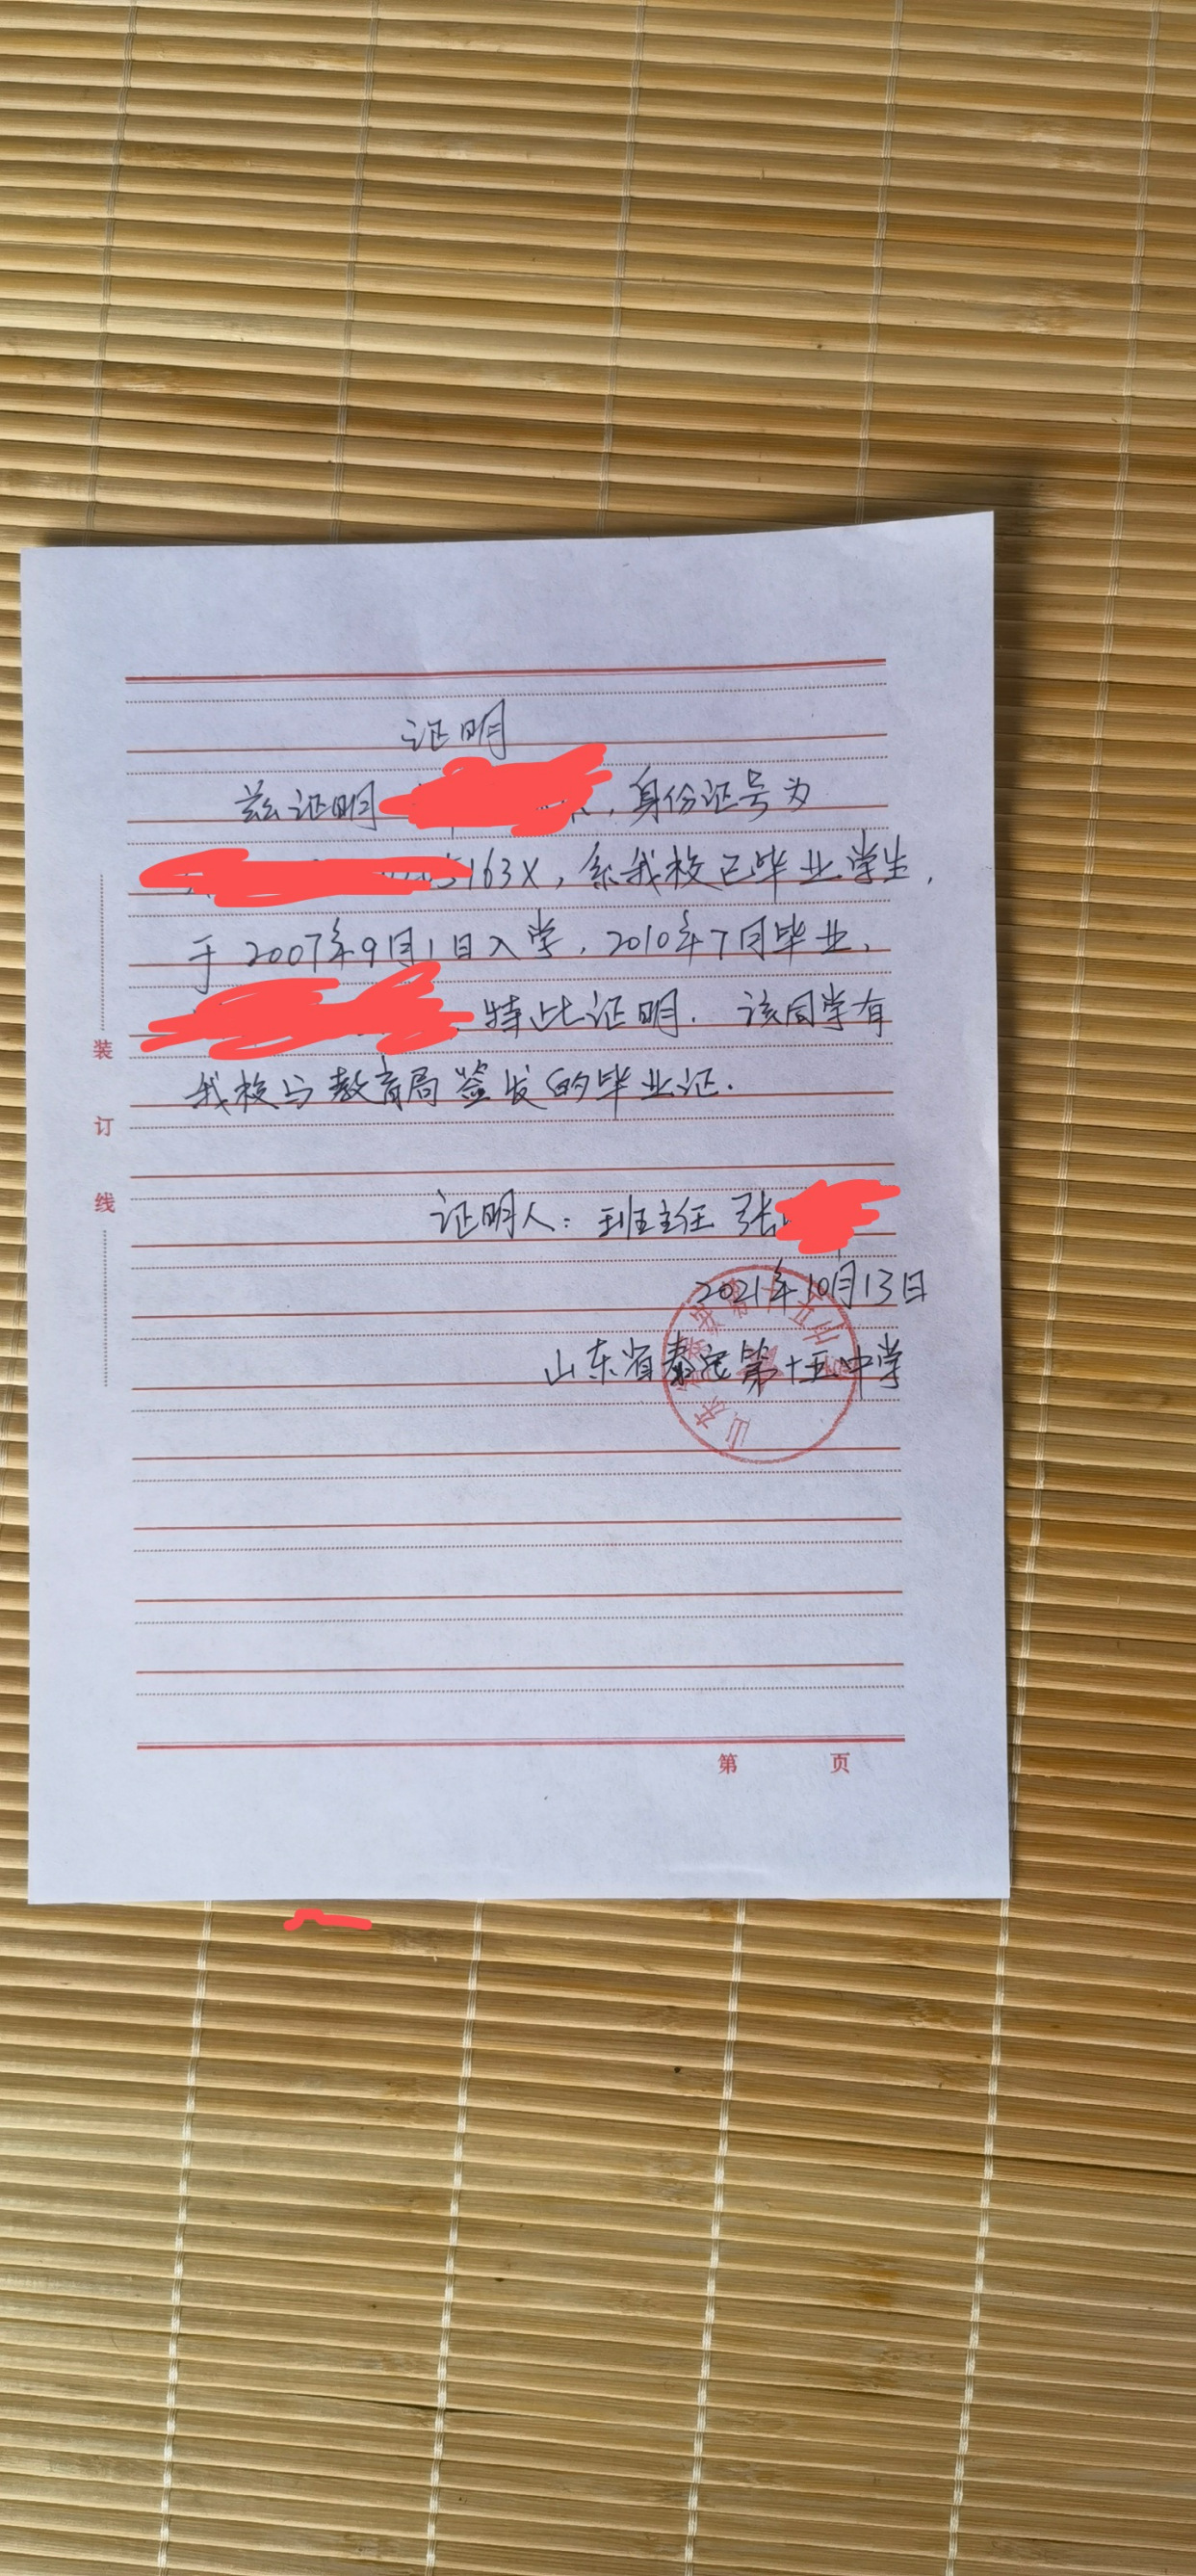 证明
兹证明 ，身份证号为
5163X，系我校已毕业学生，
于2007年9月1日入学，2010年7月毕业，
特此证明. 该同学有
我校与教育局签发的毕业证.
证明人：班主任 张
2021年10月13日
山东省泰安第十五中学
山东省泰安第十五中学
装
订
线
第 页